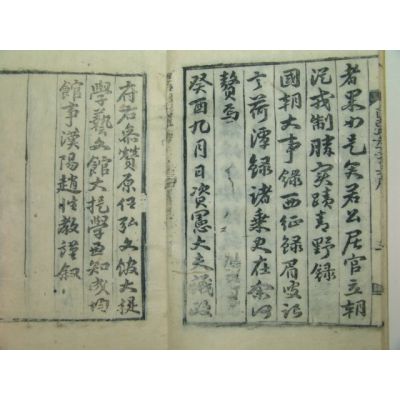 者果如是矣若公居官立朝
泥我制勝實蹟青野錄
國朝大事錄西征錄眉叟
荷潭錄諸乘史在余何
贅焉
癸酉九月日資憲大夫議政
府右參贊原任弘文館大提
學藝文館大提學知成均
館事漢陽趙性敎謹叙